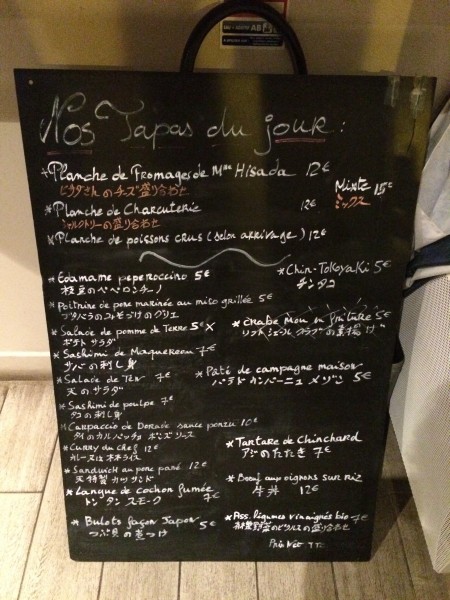 Nos Tapas du jour :
*Planche de Fromages de Mme Hisada 12€
ヒサダさんのチーズ盛り合わせ
Mixte 15€
ミックス
*Planche de Charcuterie 12€
シャルクトリーの盛り合わせ
*Planche de poissons crus (selon arrivage) 12€
*Edamame peperoccino 5€
枝豆のペペロンチーノ
*Chin-Tokoyaki 5€
チンタコ
*Poitrine de porc marinée au miso grillée 5€
ブタバラのみそづけのグリエ
*Salade de pomme de terre 5€ x
ポテトサラダ
*Crabe Mou en friture 5€
ソフトシェルクラブの素揚げ
*Sashimi de Maquereau 7€
サバの刺し身
*Salade de Ten 7€
天のサラダ
*Pâté de campagne maison 5€
パテドカンパーニュメゾン
*Sashimi de poulpe 7€
タコの刺し身
*Carpaccio de Dorade sauce ponzu 10€
タイのカルパッチョ ポンズソース
*Curry du chef 12€
*Tartare de Chinchard
アジのたたき 7€
*Sandwich au porc pané 12€
天特製カツサンド
*Bœuf aux oignons sur riz
牛丼 12€
*Langue de cochon fumée 7€
トンタンスモーク
*Bulots façon Japon 5€
つぶ貝の煮つけ
*Ass. légumes vinaigrés bio 7€
有機野菜のピクルスの盛り合わせ
Prix Net TTC